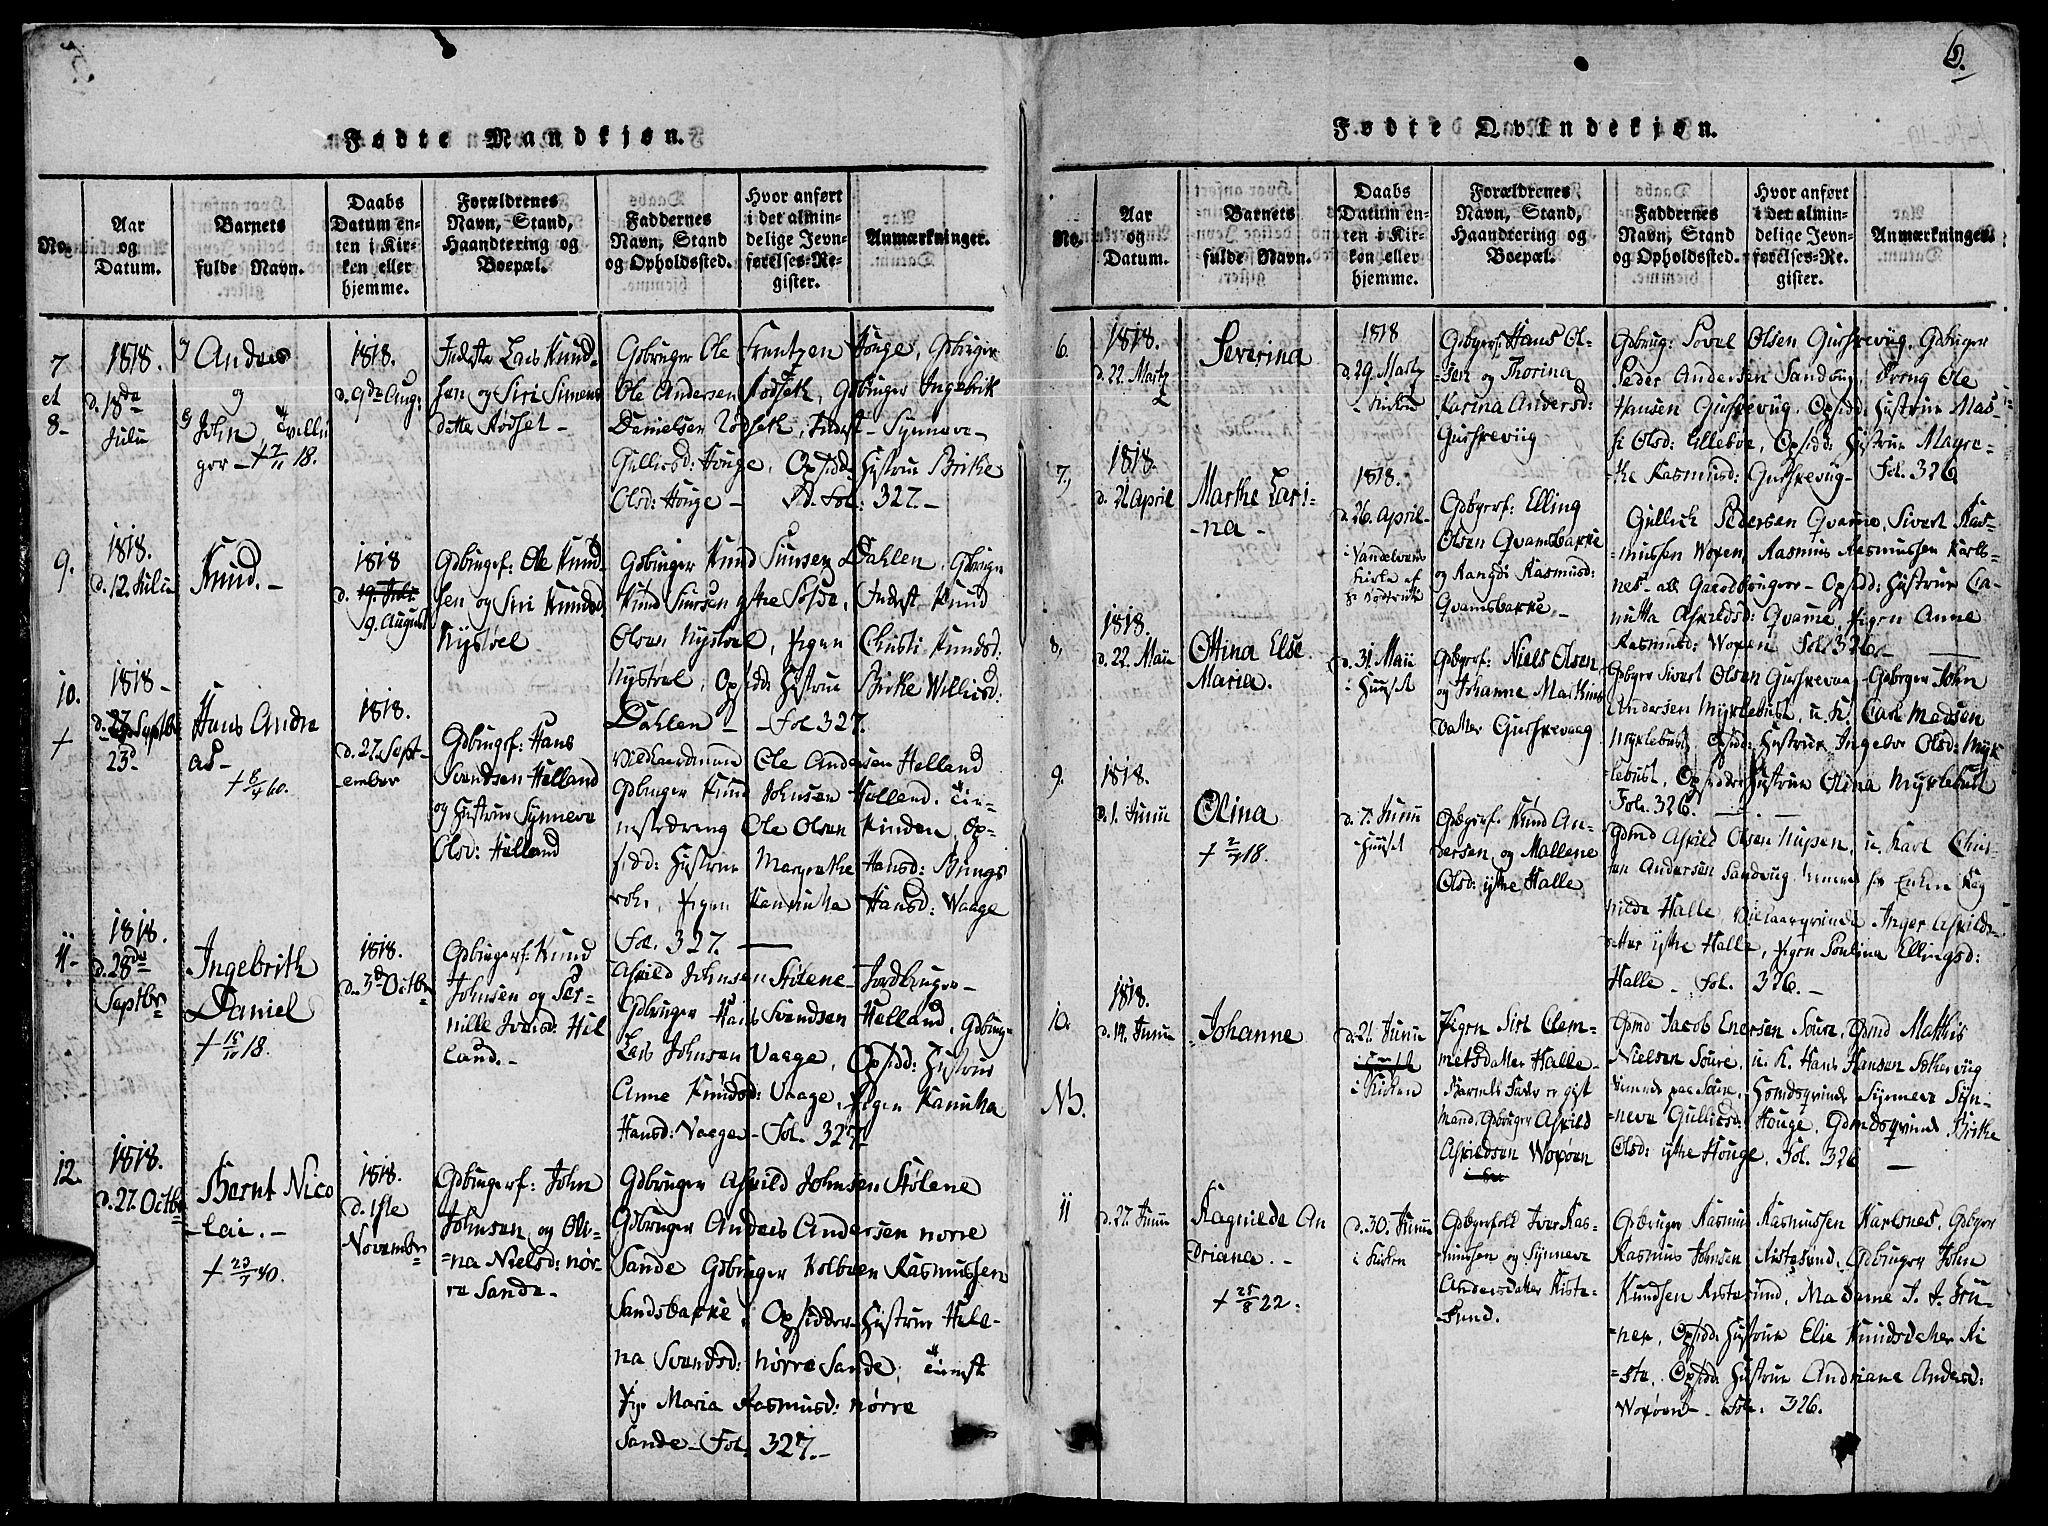 6.
Fødte Mandkjøn.
No.
Aar og Datum.
Barnets fulde Navn.
Daabs Datum enten i Kirken eller hjemme.
Forældrenes Navn, Stand, Haandtering og Boepæl.
Faddernes Navn, Stand og Opholdssted.
Hvor anført i det almindelige Jevnførelses-Register.
Anmærkninger.
7 et 8-
1818.
d. 18de Julii
Anders
og
John, Tvillin
ger - + 2/11 18.
1818.
d. 9de Aug:
Inderste Lars Knud-
sen og Siri Simens
datter Rødset -
Gdbruger Ole Frantzen Houge, Gdbruger
Ole Andersen Rodsæt, Gdbruger Ingebrik
Danielsen Rodsæt, Inderst- Synneve-
Gullicsd: Houge, Opsidd: Hustrue Birke
Olsd: Houge - Fol: 327. -
9.
1818.
d. 12 Julii
Knud. -
1818
d. 19. Juli
9. August
Gdbrugerf: Ole Knud-
sen og Siri Knudsd
Nystøel
Gdbruger Knud Dahlen, Gdbruger
Knud Olsen Nystøel, Pigen Christi Knudsd:
Nystøel, Opsidd: Hustrue Birke Willicsd:
Dahlen - Fol 327.
10.
+
1818 -
d. 27. Septbr
23d
Hans Andre
as -
+ 8/4 60.
1818.
d. 27. Sept-
ember
Gdbrugerf: Hans
Svendsen Helland
og Hustrue Synneve
Olsd: Helland
Vilkaarsmand Ole Andersen Helland
Gdbruger Knud Johnsen Helland, Tie-
nestedreng Ole Olsen Kinden, Op-
sidd: Hustrue Margrethe Hansd:
Pigen Hansd: Waage
Fol. 327. -
11-
1818.
d. 28de
Septbr
Ingebrith
Daniel
+ 15/10 18.
1818.
d. 3d Octbr
Gdbrugerf: Knud
Johnsen og Per-
nille Iversd: Hel
land. -
Askild Johnsen Stølene - Jordbruger -
Gdbruger Hans Svendsen Helland, Gdbruger
Lars Johnsen Vaage, Opsidd: Hustrue
Anne Knudsd: Vaage, Pigen
Hansd: Vaage - Fol. 327
12.
1818.
d. 27. Octbr
Bernt Nico
lai. -
+ 23/7 40.
1818.
d. 1ste
Novembr
Gdbrugerf: John
Johnsen og Oli-
na Nielsd: nør-
re Sande. -
Gdbruger Askild Johnsen Stølene
Gdbruger Anders Andersen norre
Sande Gdbruger Kolbeen Rasmussen
Sandsbakke, Opsidder-Hustrue Hele-
na Svendsd: nørre Sande, Tienst
Pige Maria Rasmusd: nørre
Sande - Fol. 327. -
Fødte Qvindekjøn.
No.
Aar og Datum.
Barnets fulde Navn.
Daabs Datum enten i Kirken eller hjemme.
Forældrenes Navn, Stand, Haandtering og Boepæl.
Faddernes Navn, Stand og Opholdssted.
Hvor anført i det almindelige Jevnførelses-Register.
Anmærkninger.
6.
1818.
d. 22. Marty
Severina
1818
d. 29. Marty
i Kirken
Gdbgerf: Hans Ol-
sen og Thorina
Karina Andersd:
Gurskevig
Gdbrug: Olsen Gurskevig, Gdbruger
Peder Andersen Sandvig, Dreng Ole
Hansen Gurskevug, Opsidd: Hustrue Mar-
Olsd: Lillebøe, Opsidd: Hustrue Magre-
the Rasmusd: Gurskevug - Fol. 326
7,
1818.
d. 21 April
Marthe Lari-
na -
1818.
d. 26. April-
Gdbgerf: Elling
Olsen Qvamsbakke
og Rangdi Rasmusd:
Qvamsbakke. -
Gullick Pedersen Qvame, Sivert Ras-
mussen Woxen, Rasmus Rasmussen Karls-
nes - alle Gaardbruger - Opsidd: Hustrue
Askildsd: Qvame, Pigen Anne
Rasmusd: Woxen Fol. 326. -
8,
1818.
d. 22. Maii
Ottina Else
Maria.
d. 31. Maii
i Huuset
Gdbgerf: Niels Olsen
og Johanne Mathias
datter Gurskevaag
Gdbger Sivert Olsen Gurskevaag - Gdbrger John
Andersen Myklebust, u. K. Carl Madsen
Myklebust, Opsidd: Hustrue Ingebr Olsd: Myk
lebust, Opsidd: Hustrue Olina Myklebust
Fol. 326.
9.
1818.
d. 1. Junii
Olina
+ 2/7 18.
d. 7. Junii
i Huuset
Gdbgerf: Knud An-
dersen og Mallene
Olsd: ytre Halle
Gdmd Askild Olsen Nupen, u. Karl Chris-
ten Andersen Sandvug Enken Rag
nilde Halle, Vilkaarqvinde Inger Askilds-
datter ytre Halle, Pigen Paulina Ellingsd:
Halle - Fol. 326. -
10.
NB.
1818.
d. 14. Junii
Johanne
d. 21. Junii
i Huset
i Kirken
Pigen Siri Clem-
metsdatter Halle
Barnets Fader er gift
mand, Gdbruger Askild
Askildsen Woxøen
Gdmd Jacob Enersen Soure, Gdmd Mathis
Nielsen Soure, u. K. Hans Hansen
Tienende paa Soure, Gdmdsqvinde Synneve Syn-
neve Gullicsd: Houge, Gdmdsqvinde Birthe
Olsd: ytre Houge, Fol. 326 -
11
d. 27. Junii
Ragnilde An
driana. -
+ 25/8 22.
d. 30. Junii
i Kirken
Gdbgerfolk Iver Ras-
mussen og Synneve
Andersdatter Riste-
sund.
Gdbruger Rasmus Rasmussen Karlsnes, Gdbger
Rasmus Johnsen Ristesund, Gdbruger John
Knudsen Ristesund, Madame J. J. Gru-
ner, Opsidd: Hustrue Elie Knudsdatter Ri
ste, Opsidd: Hustrue Andriane Andersd:
Woxøen - Fol. 326.